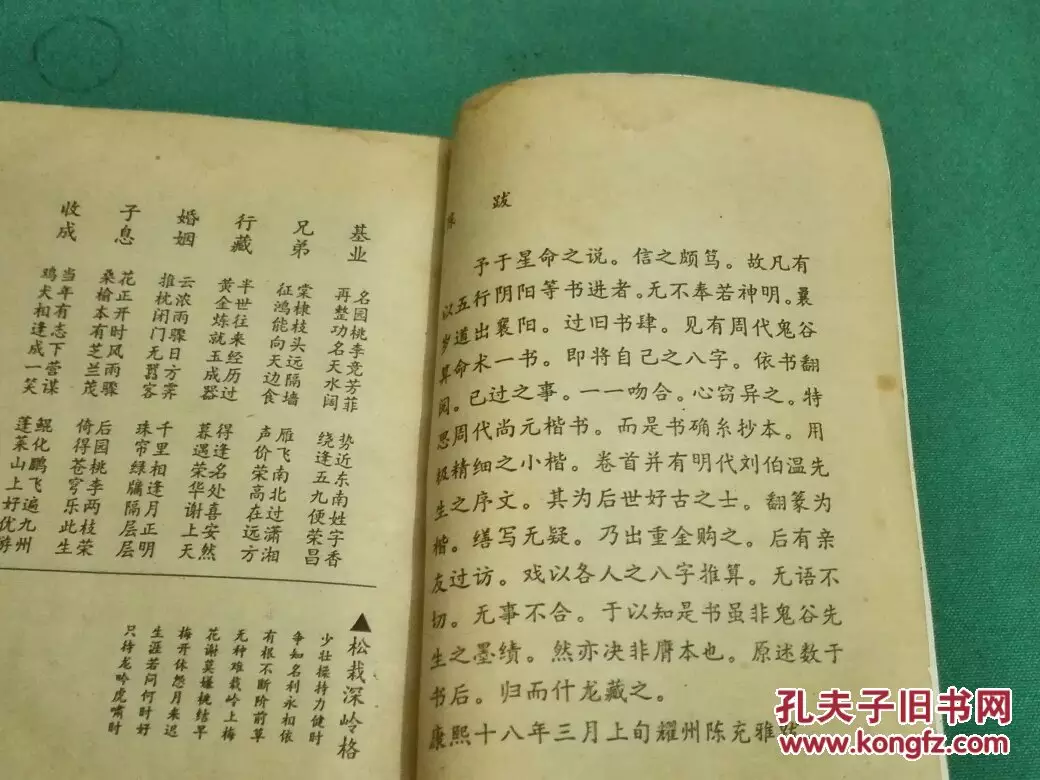 基业
名园桃李竞芳菲
再整功名天水阔
势近东南姓字香
绕逢五九便荣昌
兄弟
棠棣枝头远隔墙
征鸿能向天边食
雁飞南北过潇湘
声价荣高在远方
行藏
半世往来经历过
黄金炼就玉成器
得逢名处喜安然
暮遇荣华谢上天
婚姻
云浓雨骤日方霁
推枕闭门无嚣客
千里相逢月正明
珠帘绿牖隔层层
子息
花正开时风雨骤
桑榆本有芝兰茂
后园桃李两枝荣
倚得苍穹乐此生
收成
当年有志下营谋
鸡犬相逢成一笑
鲲化鹏飞遍九州
蓬莱山上好优游
▲松栽深岭格
少壮操持力健时
争知名利永相依
有根不断阶前草
无种难栽岭上梅
花谢莫嫌桃结早
梅开休怨月来迟
生涯若问何时好
只待龙吟虎啸时
跋
予于星命之说。信之颇笃。故凡有
以五行阴阳等书进者。无不奉若神明。曩
岁道出襄阳。过旧书肆。见有周代鬼谷
算命术一书。即将自己之八字。依书翻
阅。已过之事。一一吻合。心窃异之。特
思周代尚元楷书。而是书确糸抄本。用
极精细之小楷。卷首并有明代刘伯温先
生之序文。其为后世好古之士。翻篆为
楷。缮写无疑。乃出重金购之。后有亲
友过访。戏以各人之八字推算。无语不
切。无事不合。于以知是书虽非鬼谷先
生之墨绩。然亦决非膺本也。原述数于
书后。归而什龙藏之。
康熙十八年三月上旬耀州陈充雅跋
孔夫子旧书网
www.kongfz.com